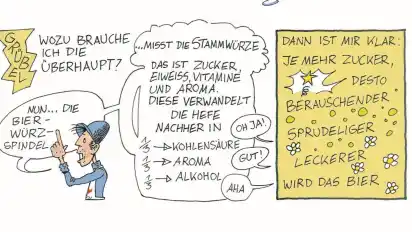 GRÜBEL
WOZU BRAUCHE
ICH DIE
ÜBERHAUPT?
NUN... DIE
BIER-
WÜRZ-
SPINDEL
...MISST DIE STAMMWÜRZE.
DAS IST ZUCKER,
EIWEISS, VITAMINE
UND AROMA.
DIESE VERWANDELT
DIE HEFE
NACHHER IN
1/3 → KOHLENSÄURE
1/3 → AROMA
1/3 → ALKOHOL
OH JA!
GUT!
AHA
DANN IST MIR KLAR:
JE MEHR ZUCKER,
DESTO
BERAUSCHENDER
SPRUDELIGER
LECKERER
WIRD DAS BIER